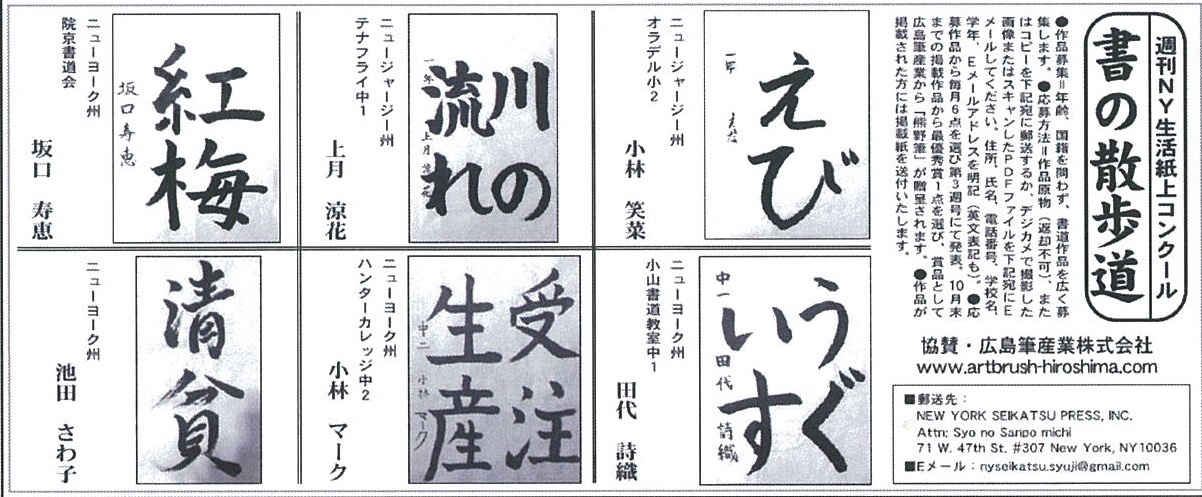 週刊NY生活紙上コンクール
書の散歩道
●作品募集=年齢、国籍を問わず、書道作品を広く募
集します。●応募方法=作品原物(返却不可)、また
はコピーを下記宛に郵送するか、デジカメで撮影した
画像またはスキャンしたPDFファイルを下記宛にE
メールしてください。住所、氏名、電話番号、学校名、
学年、Eメールアドレスを明記(英文表記も)。●応
募作品から毎月6点を選び第3週号にて発表。10月末
までの掲載作品から最優秀賞1点を選び、賞品として
広島筆産業から「熊野筆」が贈呈されます。●作品が
掲載された方には掲載紙を送付いたします。
協賛・広島筆産業株式会社
www.artbrush-hiroshima.com
■郵送先:
NEW YORK SEIKATSU PRESS, INC.
Attn: Syo no Sanpo michi
71 W. 47th St. #307 New York, NY10036
■Eメール:nyseikatsu.syuji@gmail.com
えび
ニュージャージー州
オラデル小2
小林 笑菜
川の
流れ
一年 上月 涼花
ニュージャージー州
テナフライ中1
上月 涼花
紅梅
坂口寿恵
ニューヨーク州
院京書道会
坂口 寿恵
うぐ
いす
中一 田代 詩織
ニューヨーク州
小山書道教室中1
田代 詩織
受注
生産
中二 小林 マーク
ニューヨーク州
ハンターカレッジ中2
小林 マーク
清貧
ニューヨーク州
池田 さわ子